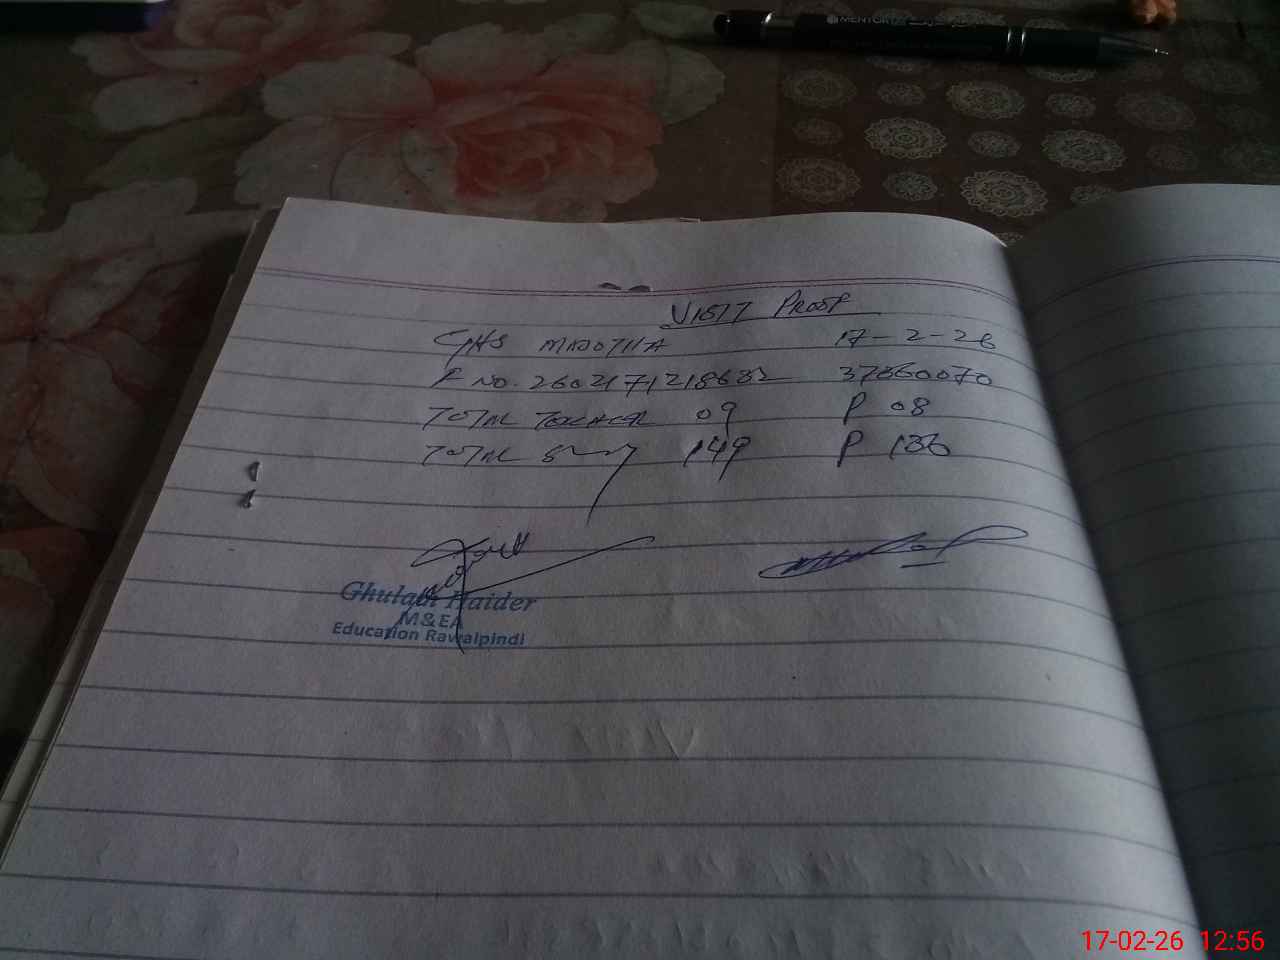 MENTOR
VISIT PROOF
GHS 17-2-26
F NO. 2602171218682 37360070
TOTAL TEACHER 09 P 08
TOTAL 149 P 136
Ghulam Haider
M&EA
Education Rawalpindi
17-02-26 12:56